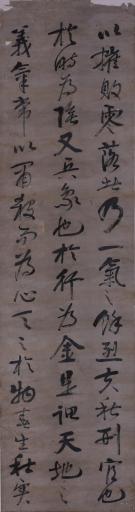 以摧敗零落者乃一氣之餘烈夫秋刑官也
於時為陰又兵象也於行為金是謂天地之
義氣常以肅殺而為心天之於物春生秋實